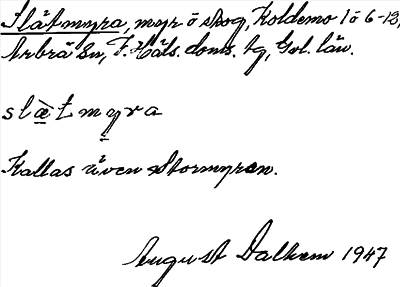 Slåtmyra, myr o skog, Koldemo 1 o 6-13,
Arbrå sn, F. Häls. doms. tg, Gvl. län.
slætmyra
Kallas även Stormyran.
August Dalhem 1947